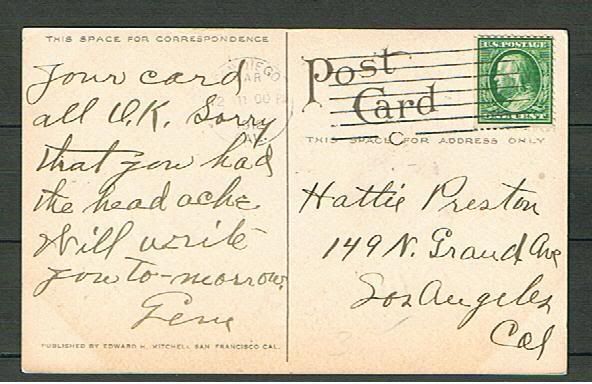 THIS SPACE FOR CORRESPONDENCE
Your card
all O.K. Sorry
that you had
the head ache
Will write
you to-morrow.
Gene
PUBLISHED BY EDWARD H. MITCHELL SAN FRANCISCO CAL.
DIEGO
MAR
12 11 00 PM
CAL.
Post
Card
C
U.S. POSTAGE
ONE CENT
THIS SPACE FOR ADDRESS ONLY
Hattie Preston
149 N. Grand Ave
Los Angeles
Cal